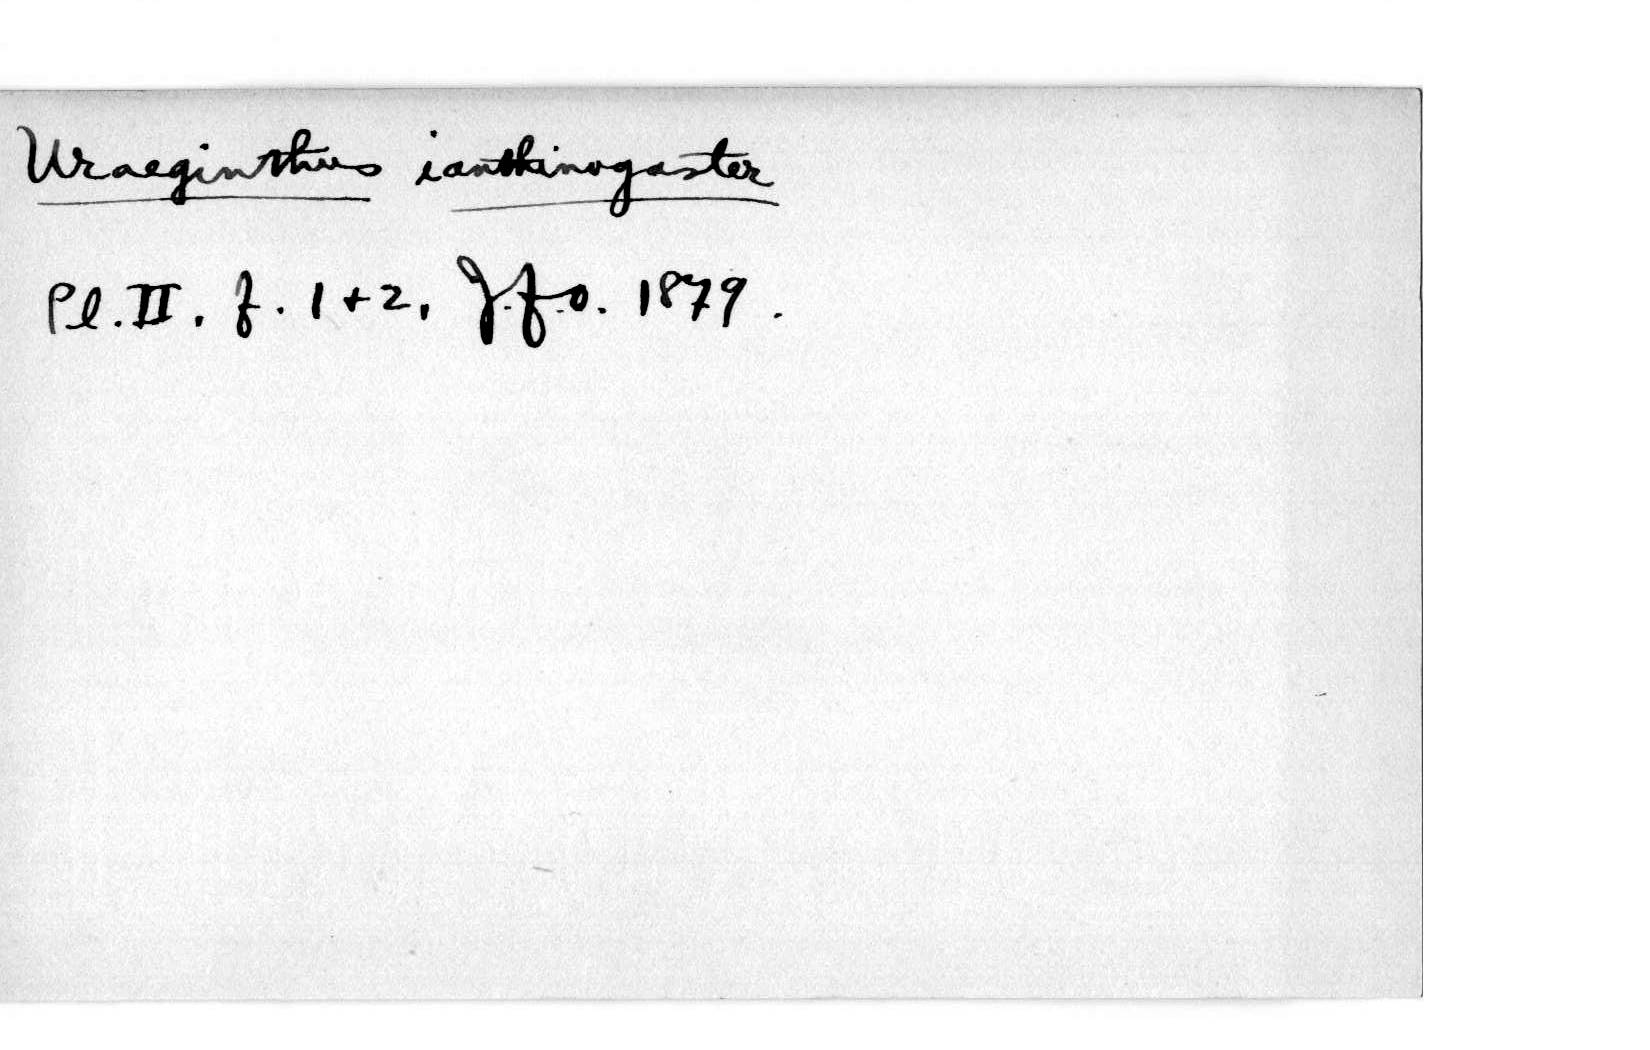 Uraeginthus ianthinogaster
Pl. II. f. 1+2, J.f.o. 1879.